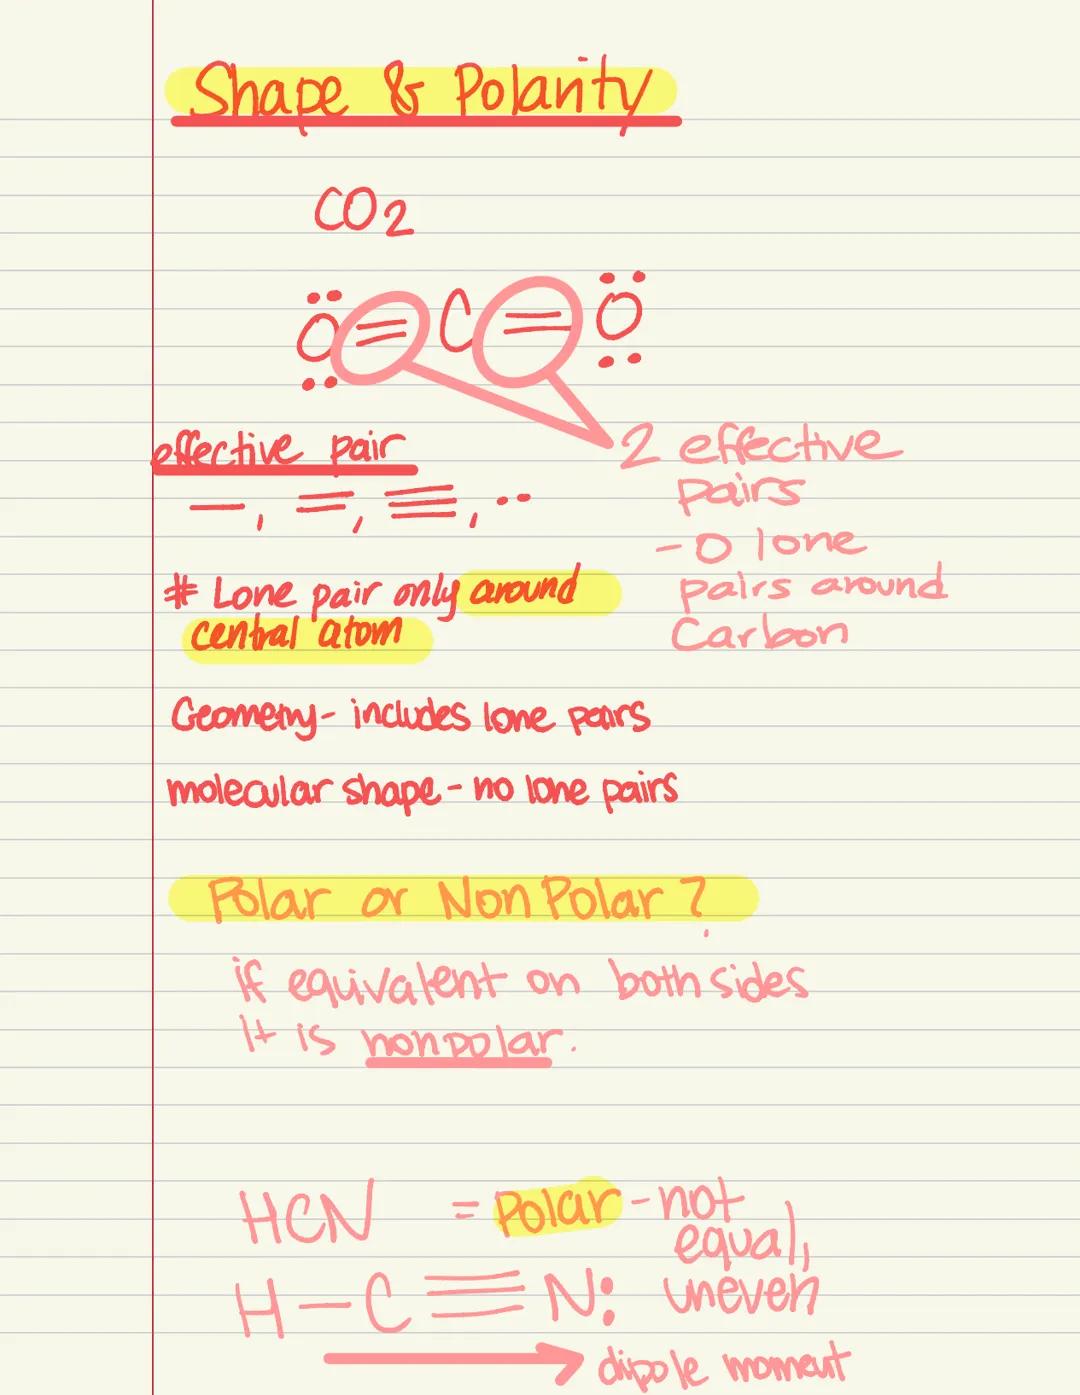 Shape & Polarity
CO2
O = C = O
effective pair
2 effective
pairs
- 0 lone
pairs around
Carbon
—, =, ≡, ..
# Lone pair only around
central atom
Geometry- includes lone pairs
molecular shape- no lone pairs
Polar or NonPolar?
if equivalent on both sides
it is nonpolar.
HCN = Polar - not
equal,
uneven
H — C ≡ N:
dipole moment